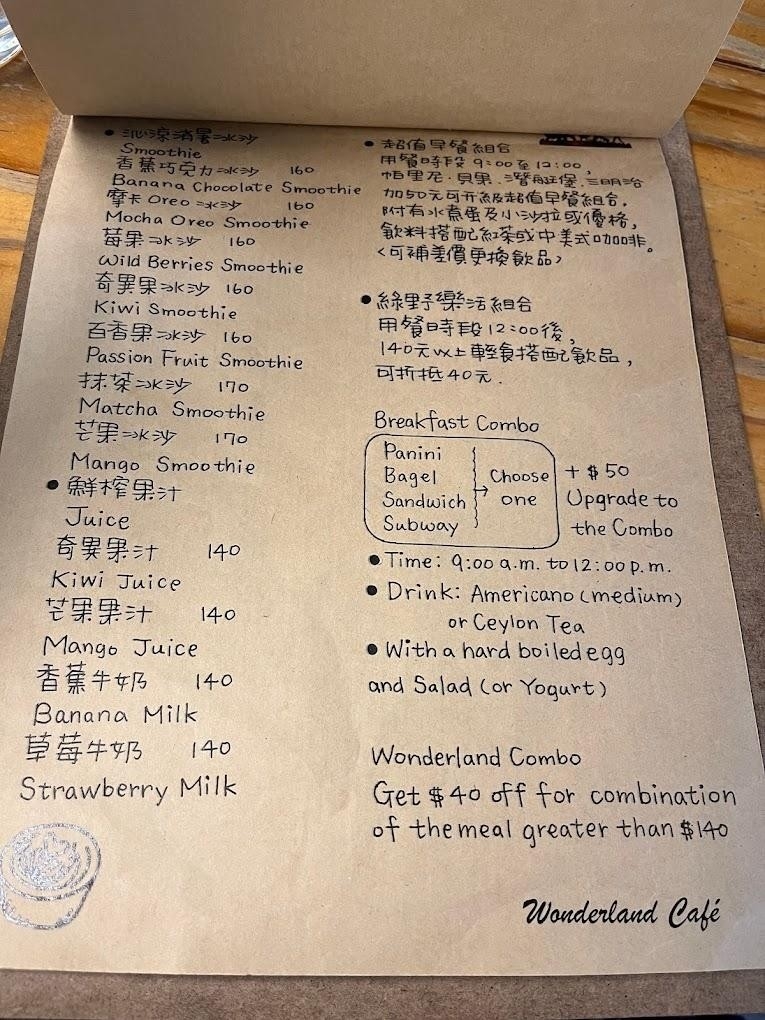 • 沁涼消暑冰沙
Smoothie
香蕉巧克力冰沙 160
Banana Chocolate Smoothie
摩卡Oreo冰沙 160
Mocha Oreo Smoothie
莓果冰沙 160
Wild Berries Smoothie
奇異果冰沙 160
Kiwi Smoothie
百香果冰沙 160
Passion Fruit Smoothie
抹茶冰沙 170
Matcha Smoothie
芒果冰沙 170
Mango Smoothie
• 鮮榨果汁
Juice
奇異果汁 140
Kiwi Juice
芒果果汁 140
Mango Juice
香蕉牛奶 140
Banana Milk
草莓牛奶 140
Strawberry Milk
• 超值早餐組合
用餐時段9:00至12:00,
帕里尼.貝果.潛艇堡.三明治
加50元可升級超值早餐組合,
附有水煮蛋及小沙拉或優格,
飲料搭配紅茶或中美式咖啡。
<可補差價更換飲品>
• 綠野樂活組合
用餐時段12:00後,
140元以上輕食搭配飲品,
可折抵40元.
Breakfast Combo
Panini
Bagel
Sandwich
Subway
→ Choose
one
+ $50
Upgrade to
the Combo
• Time: 9:00 a.m. to 12:00 p.m.
• Drink: Americano (medium)
or Ceylon Tea
• With a hard boiled egg
and Salad (or Yogurt)
Wonderland Combo
Get $40 off for combination
of the meal greater than $140
Wonderland Café